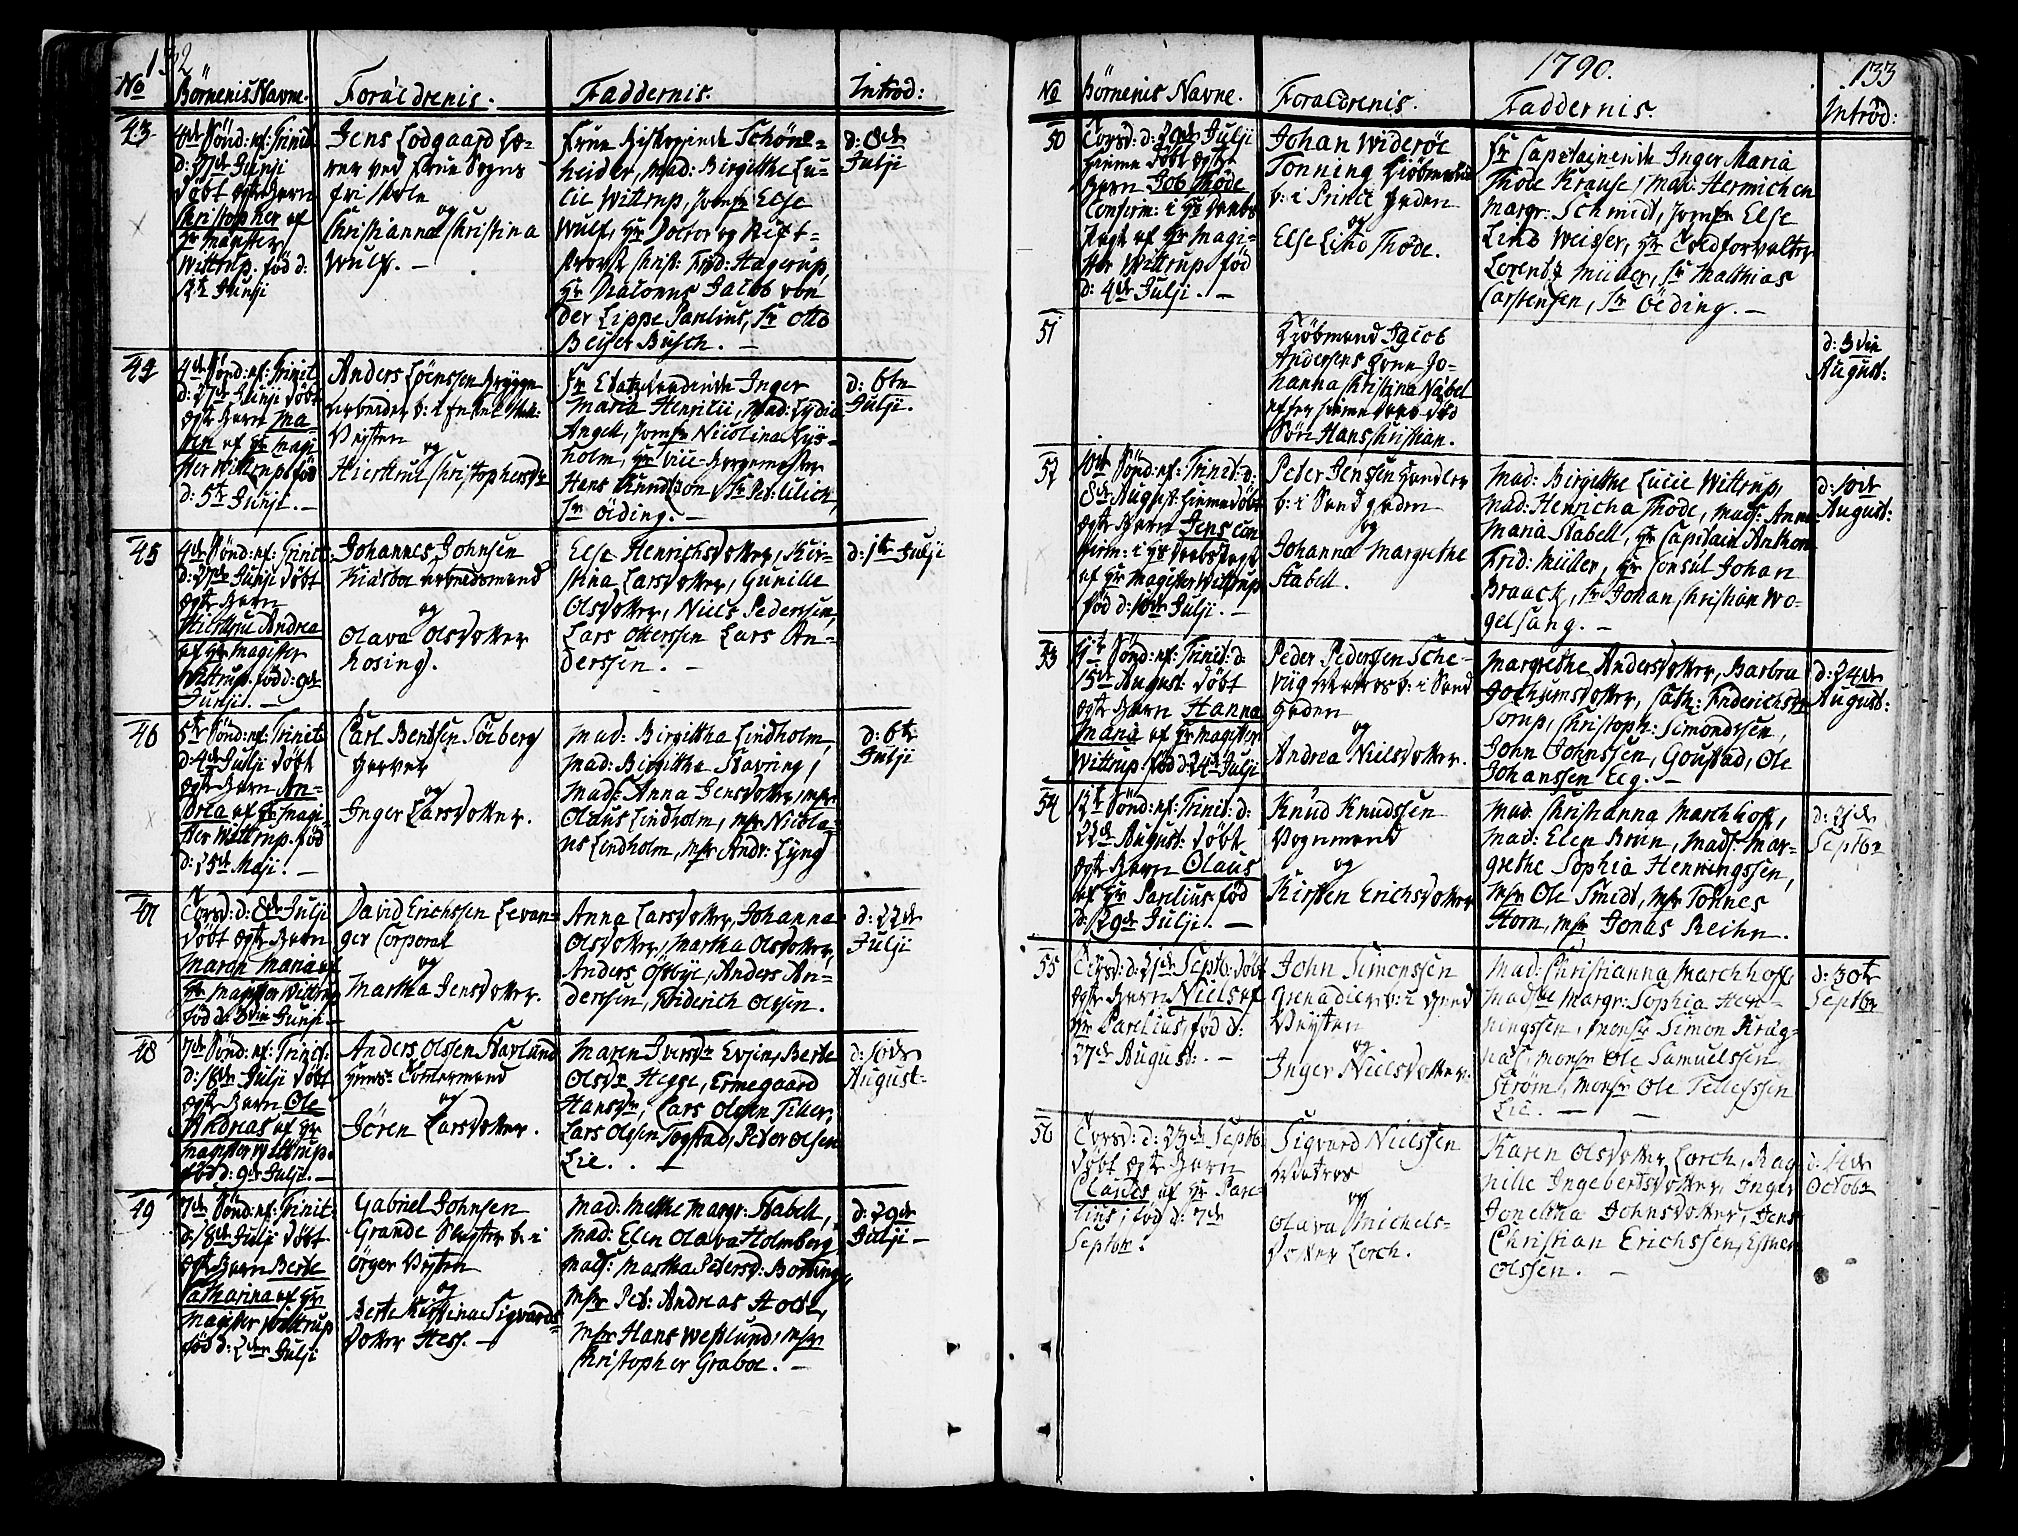 132
No
Börnenis Navne.
Forældrenis.
Faddernis.
Introd:
43
4de Sönd: ef: Trinit:
d: 27de Junji
döbt ægte Barn
Christopher af
Hr Magister
Wittrup. föd d:
12te Junji
Jens Lodgaard Læ-
rer ved Frue Sogns
fri Skole
og
Christianna Christina
Wulf. —
Frue Biskopinde Schöne-
heider, Mad: Birgitthe Lu-
cie Wittrup, Jomfr Else
Wulf, Hr Doctor og Stift-
Christ: Frid: Hagerup,
Hr Jacob von
der Lippe Parelius, Sr Otto
Beyer Busch. —
d: 8de
Julji
44
4de Sönd: ef: Trinit:
d: 27de Junji döbt
ægte Barn Ma-
ren af Hr Magi-
ster Wittrup. föd
d: 5te Junji. —
Anders Lörenssen Brygge
arbeider b: i
Veyten
og
Hierstru Christophersdr
Fr Etatzraadinde Inger
Maria Henrici, Mad: Lydia
Angell, Jomfr Nicolina Lys-
holm, Hr Vice-Borgemester
Hans Knudtzon, Sr Pet: Lilick,
Sr Öiding. —
d: 6te
Julji.
45
4de Sönd: ef: Trinit:
d: 27de Junji döbt
ægte Barn
Hierstru Andrea
af Hr Magister
Wittrup. föd d: 9de
Junji. —
Johannes Johnsen
Kiasboe Arbeidsmand
og
Olava Olsdotter
Rosing.
Else Henrichsdotter, Kir-
stina Larsdotter, Gunille
Olsdotter, Niels Pederssen,
Lars Otterssen Lars An-
derssen. —
d: 1te Julji
46
5te Sönd: ef: Trinit:
d: 4de Julji döbt
ægte Barn An-
drea af Hr Magi-
ster Wittrup. föd
d: 25de Maji. —
Carl Bentsen Soeberg
Garver
og
Inger Larsdotter.
Mad: Birgitha Lindholm,
Mad: Birgitthe Stavring,
Mads: Anna Jensdotter, Msr
Olaus Lindholm, Msr Nicola-
us Lindholm, Msr Andr: Lyng
d: 6te
Julji
47
Torsd: d: 8de Julji
döbt ægte Barn
Maren Maria af
Hr Magister Wittrup
föd d: 3die Junji. —
David Erichssen Levan-
ger Corporal
og
Martha Jensdotter.
Anna Larsdotter, Johanna
Olsdotter, Martha Olsdotter,
Anders Ösbye, Anders An-
derssen, Friderich Olssen.
d: 22de
Julji
48
7de Sönd: ef: Trinit:
d: 18de Julji döbt
ægte Barn Ole
Andreas af Hr
Magister Wittrup.
föd d: 9de Julji. —
Anders Olssen Stavlund
Huus-Tömmermand
og
Jören Larsdotter.
Maren Iversdr Evjen, Berte
Olsdr Hegge, Ermegaard
Hansdr, Lars Olssen Tiller,
Lars Olssen Fogstad, Peter Olssen
Lie. . —
d: 10de
August-
49
7de Sönd: ef: Trinit:
d: 18de Julji döbt
ægte Barn Berte
Catharina af Hr
Magister Wittrup
föd d: 2den Julji
Gabriel Johnsen
Grande Slagter b: i
Örger Veyten
og
Berte Kirstina Sigvards-
dotter Hess. —
Mad: Mette Margr: Stabell,
Mad: Elen Olava Holmberg,
Mads: Martha Petersd: Bötting,
Msr Pet: Andreas Hooe,
Msr Hans Westlund, Msr
Christopher Graboe. —
d: 29de
Julji —
1790.
133
No
Börnenis Navne.
Forældrenis.
Faddernis.
Introd:
50
Torsd: d: 29de Julji
hiemme döbt ægte
Barn Job Thöde,
Confirm: i Hr
af Hr Magi-
ster Wittrup. föd
d: 4de Julji. —
Johan Wideröe
Tonning Kiöbmand
b: i Prindz Gaden
og
Else Lind Thöde.
Fr Capitainerinde Inger Maria
Thöde Krause, Mad: Hermichen
Margr: Schmidt, Jomfr Else
Lind Weisser, Hr Toldforvalter
Lorentz Müller, Sr Matthias
Carstensen, Sr Öeding. —
51
Kiöbmand Jacob
Andersens Kone Jo-
hanna Christina Nabel
efter hiemme döbt död
Sön Hans Christian.
d: 3die
August:
52
10de Sönd: ef: Trinit: d:
8de August hiemme döbt
ægte Barn Jens con-
firm: i Hr
af Hr Magister Wittrup
föd d: 10de Julji. —
Peter Jenssen Handler
b: i Sand gaden
og
Johanna Margrethe
Stabell.
Mad: Birgitthe Lucie Wittrup,
Mad: Henricha Thöde, Mads: Anna
Maria Stabell, Hr Capitain Anthon
Frid: Müller, Hr Consul Johan
Braack, Sr Johan Christian Wo-
gelsang. —
d: 10de
August:
53
11te Sönd: ef: Trinit: d:
15de August: döbt
ægte Barn Hanna
Maria af Hr Magister
Wittrup. föd d: 24de Julji
Peder Pederssen Sche-
viig Matros b: i Sand
gaden
og
Andrea Nielsdotter.
Margrethe Andersdotter, Barbra
Jochumsdotter, Cath: Friderichsdr
Sorup, Christoph: Simondssen,
John Johnssen, Goustad, Ole
Johanssen Eeg. —
d: 24de
August:
54
12te Sönd: ef: Trinit: d:
22de August: döbt
ægte Barn Olaus
af Hr Parelius föd
d: 29de Julji. —
Knud Knudssen
Vognmand
og
Kirsten Erichsdotter
Mad: Christianna Marchhoff,
Mad: Elen Bruun, Mads: Mar-
grethe Sophia Henningssen,
Msr Ole Smidt, Msr Tönnes
Storm, Msr Jonas Reihn.
d: 21de
Septbr
55
Tirsd: d: 21de Septb: döbt
ægte Barn Niels af
Hr Parelius, föd d:
27de August: . —
John Simonssen
Grenadier b: i
Veyten
og
Inger Nielsdotter.
Mad: Christianna Marchhoff
Madslle Margr: Sophia Hen-
ningssen, Monsr Simon Krag-
næs, Monsr Ole Samuelssen
Ström, Monsr Ole Tellefssen
Lie. — —
d: 30te
Septbr
56
Torsd: d: 23de Septb:
döbt ægte Barn
Claudes af Hr Pare-
lius, föd d: 7de
Septbr.
Sigvard Nielssen
Matros
og
Olava Michels-
dotter Lorch.
Karen Olsdotter Lorch, Rag-
nille Ingebertsdotter, Inger
Jonetha Johnsdotter, Jens
Christian Erichssen, Esmer
Olssen. —
d: 12de
Octobr